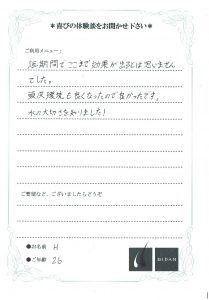 ＊喜びの体験談をお聞かせ下さい＊
ご利用メニュー：
短期間でここまで効果が出るとは思いません
でした。
頭皮環境も良くなったので良かったです。
水の大切さを知りました！
ご要望など、ございましたらどうぞ
●お名前 H
●ご年齢 26
BIDAN